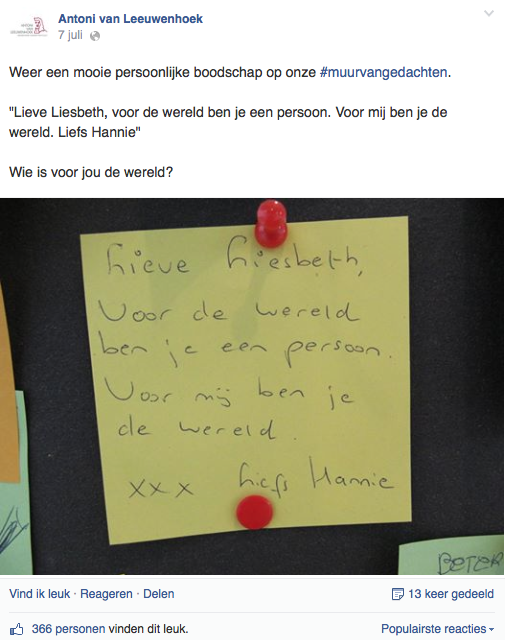 Antoni van Leeuwenhoek
7 juli
Weer een mooie persoonlijke boodschap op onze #muurvangedachten.
"Lieve Liesbeth, voor de wereld ben je een persoon. Voor mij ben je de
wereld. Liefs Hannie"
Wie is voor jou de wereld?
Lieve Liesbeth,
Voor de wereld
ben je een persoon.
Voor mij ben je
de wereld.
xxx Liefs Hannie
BETER
Vind ik leuk · Reageren · Delen
13 keer gedeeld
366 personen vinden dit leuk.
Populairste reacties